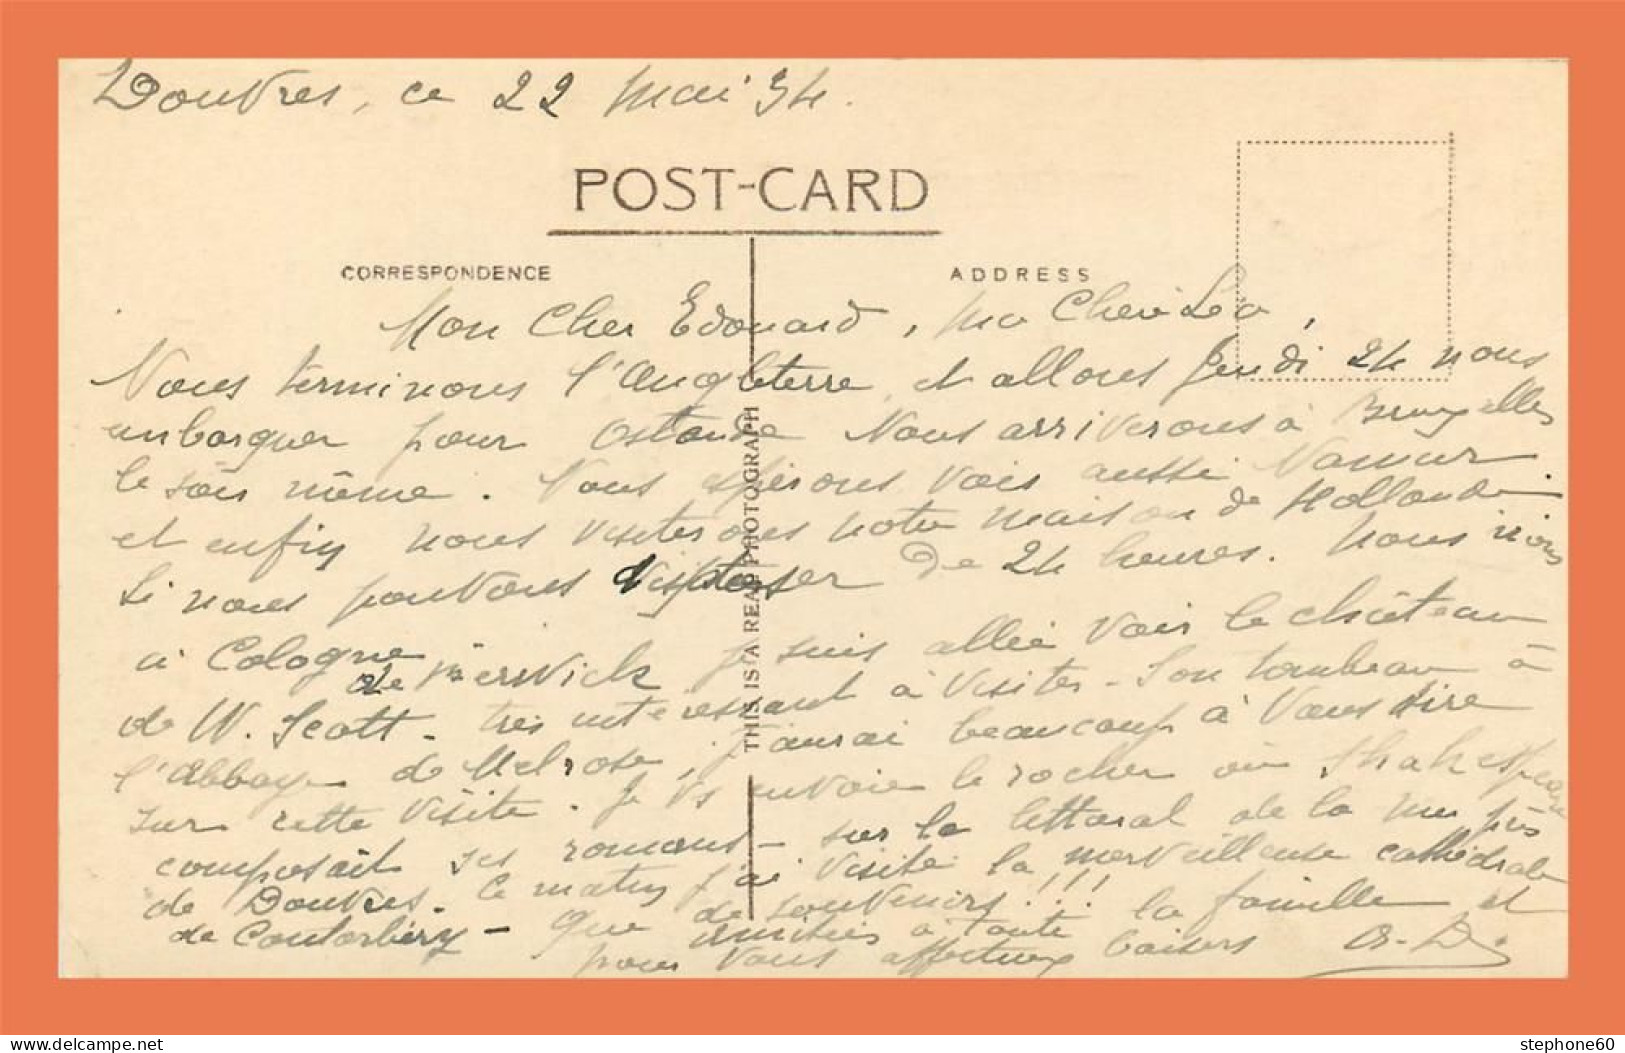 Douvres, ce 22 Mai 34.
POST-CARD
CORRESPONDENCE
ADDRESS
Mon Cher Edouard, Ma Chère Léa,
Nous terminons l'Angleterre et allons Jeudi 24 nous
embarquer pour Ostende Nous arriverons à Bruxelles
le soir même. Nous espérons voir aussi Namur
et enfin nous visiterons notre maison de Hollande.
Si nous pouvons disposer de 24 heures. Nous irons
à Cologne
de Berwick je suis allée voir le château
de W. Scott - très intéressant à visiter - Son tombeau à
l'Abbaye de Melrose, j'aurai beaucoup à vous dire
sur cette visite. Je vs envoie le rocher où Shakespeare
composait ses romans - sur le littoral de la mer près
de Douvres. Ce matin j'ai visité la merveilleuse cathédrale
de Canterbéry - que de souvenirs!!!
amitiés à toute la famille et
pour vous affectueux baisers
THIS IS A REAL PHOTOGRAPH
stephone60
delcampe.net